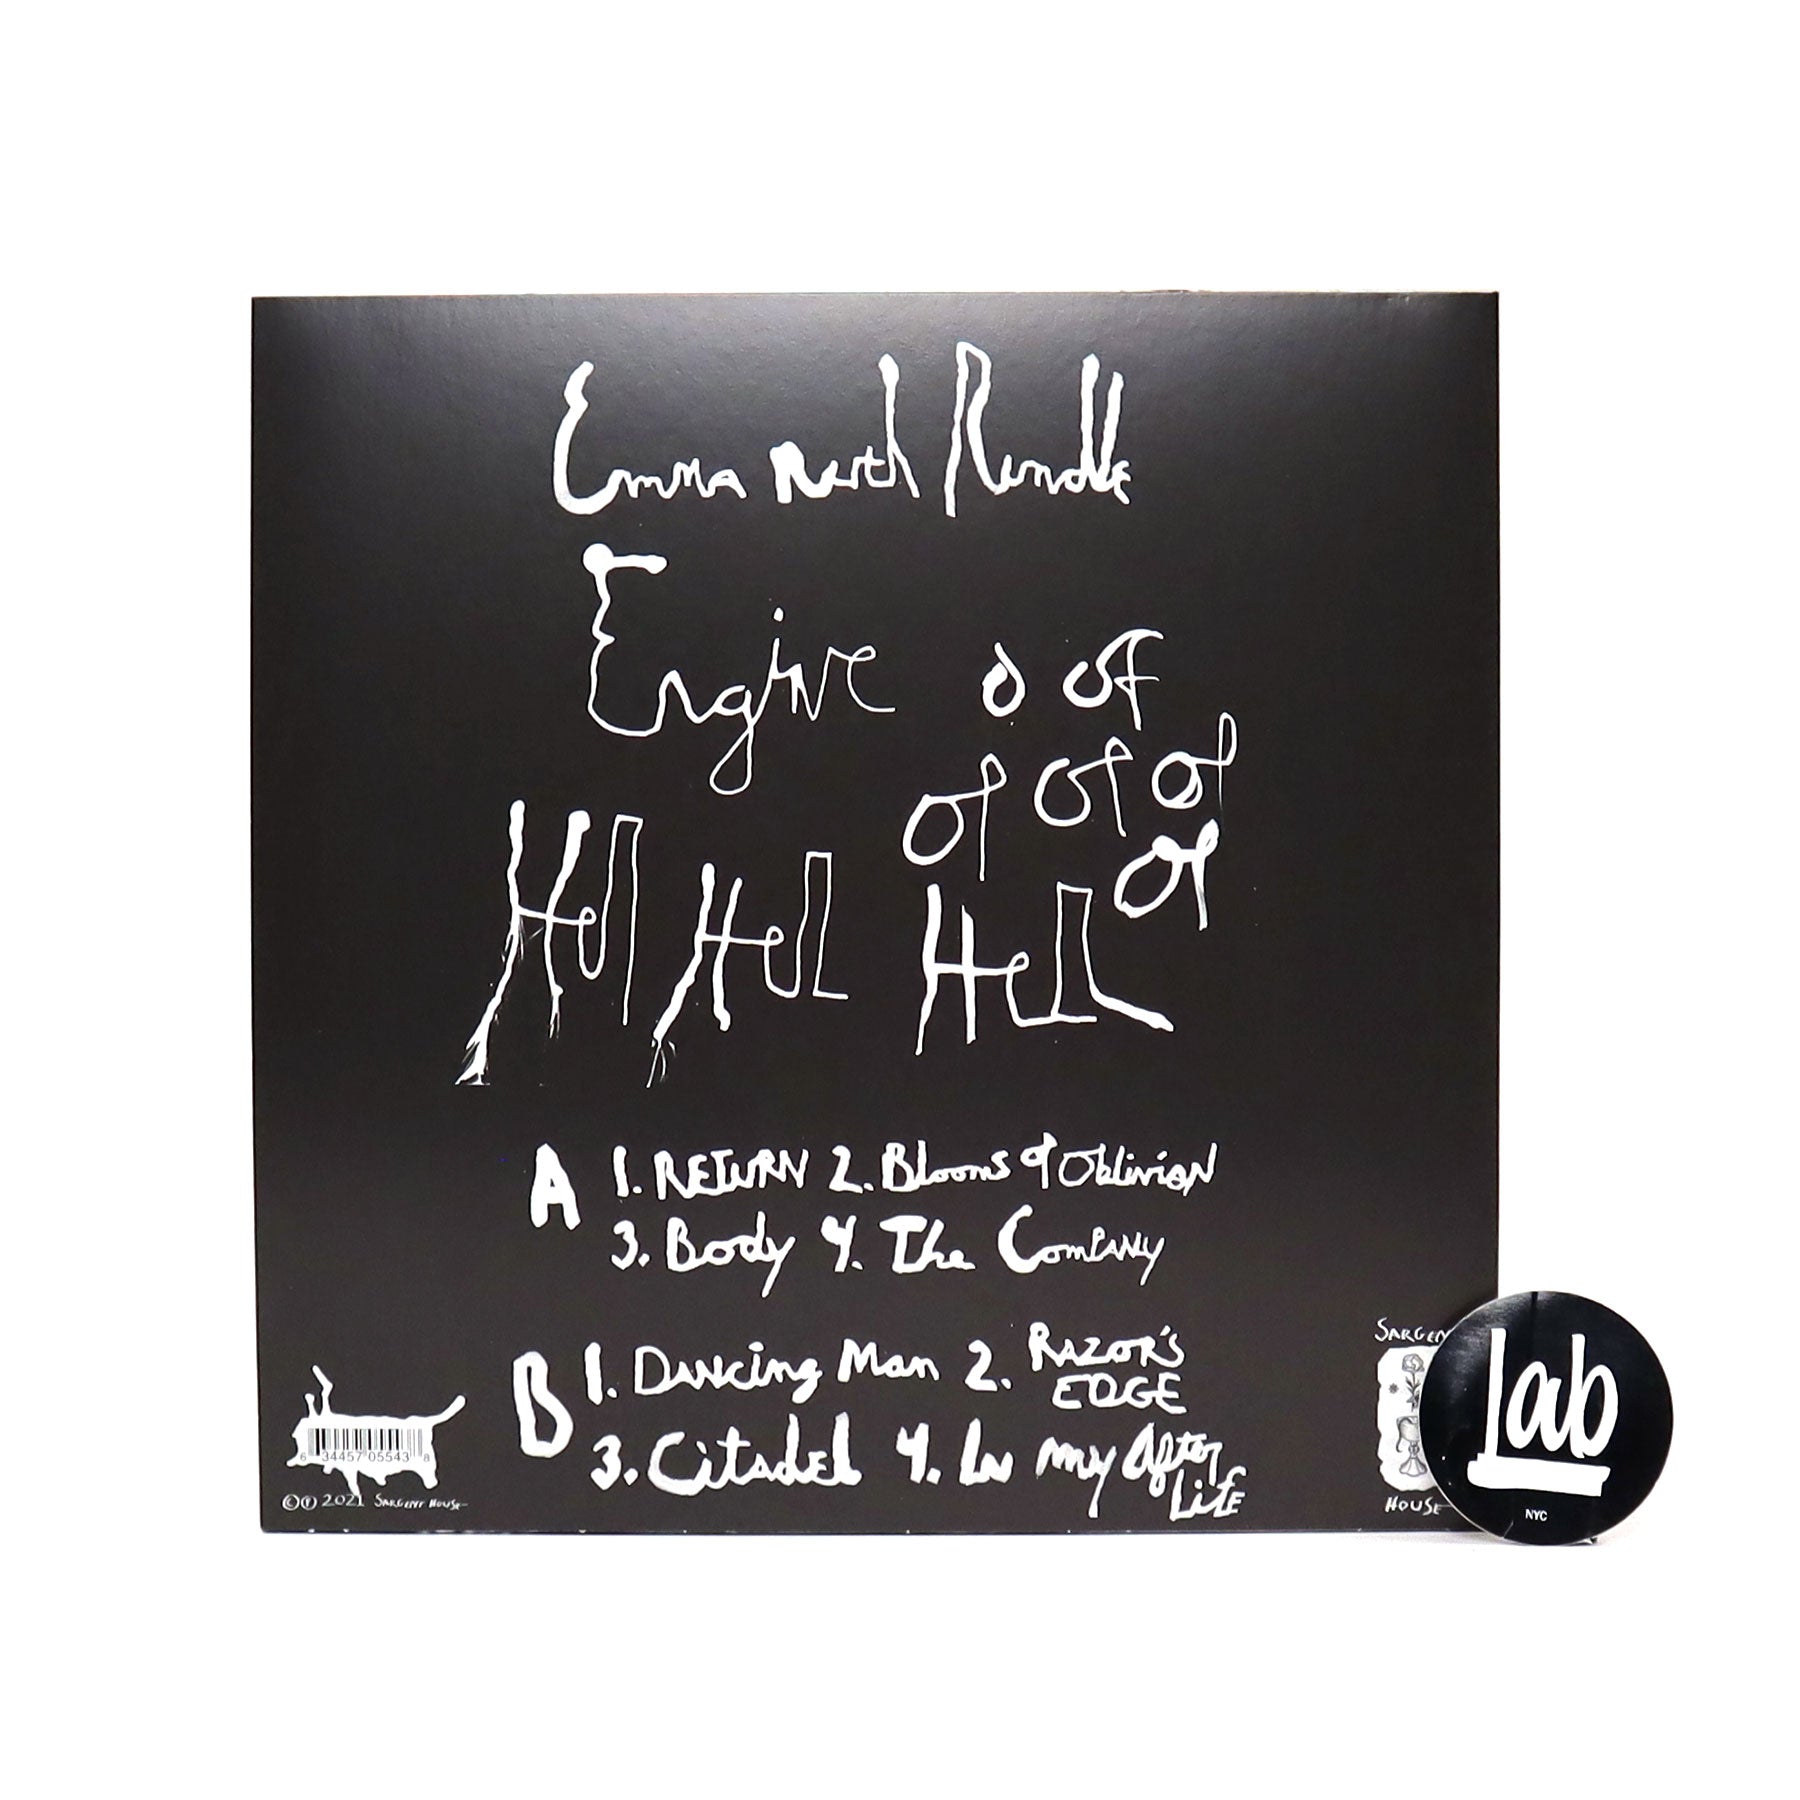 Emma Ruth Rundle
Engine o of
of of of
of
Hell Hell Hell
A 1. RETURN 2. Blooms of Oblivion
3. Body 4. The Company
B 1. Dancing Man 2. RAZOR'S
EDGE
3. Citadel 4. In my After
Life
6 34457 05543 8
© ℗ 2021 SARGENT HOUSE
SARGEN
HOUSE
Lab
NYC